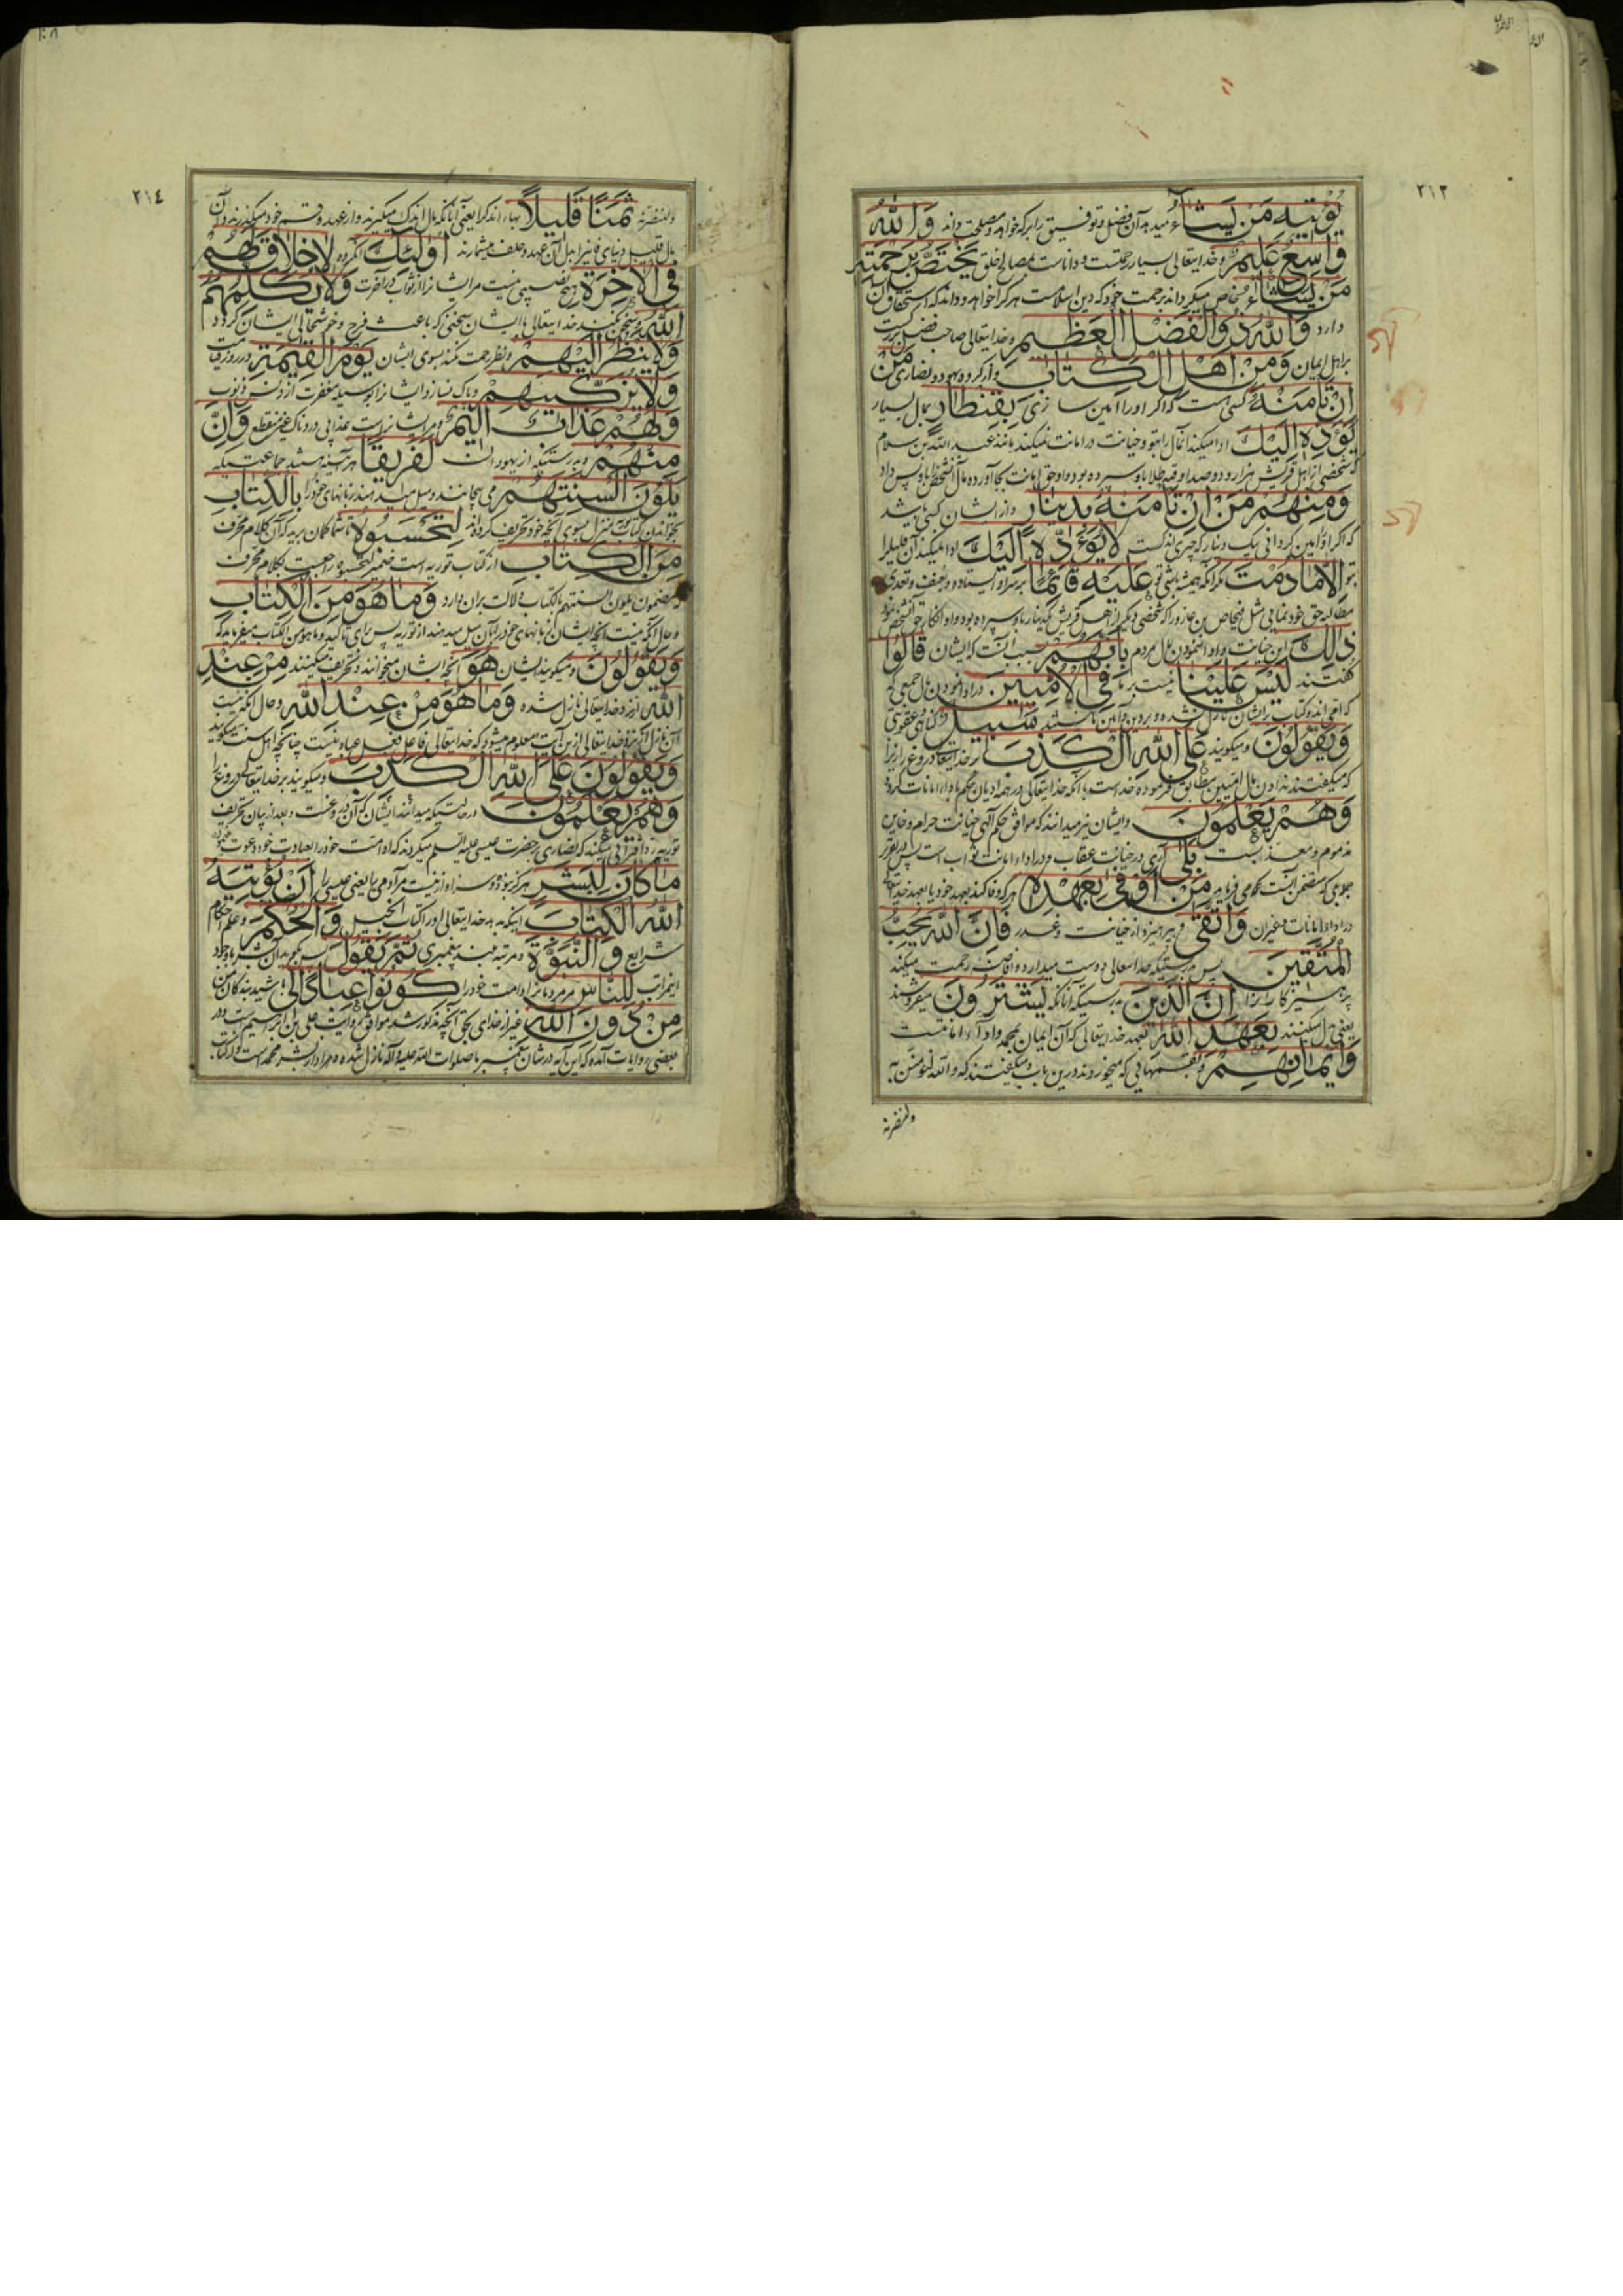 ٢١٣
يُؤْتِيهِ مَنْ يَشَاءُ میدهد آن فضل و توفیق را بهر که خواهد و مصلحت داند وَاللَّهُ
وَاسِعٌ عَلِيمٌ و خدایتعالی بسیار رحمتست و داناست بمصالح خلق يَخْتَصُّ بِرَحْمَتِهِ
مَنْ يَشَاءُ مخاص میگرداند برحمت خود که دین اسلامست هر کرا خواهد و داند که استحقاق آن
دارد وَاللَّهُ ذُو الْفَضْلِ الْعَظِيمِ و خدایتعالی صاحب فضل بزرگست
بر اهل ایمان وَمِنْ أَهْلِ الْكِتَابِ و از گروه یهود و نصاری مَنْ
إِنْ تَأْمَنْهُ کسی هست که اگر او را امین سازی بِقِنْطَارٍ بمال بسیار
يُؤَدِّهِ إِلَيْكَ ادا میکند آنمال را بتو و خیانت در امانت نمیکند مانند عبد الله بن سلام
که شخصی از اهل قریش هزار و دوصد اوقیه طلا باو سپرده بود و او حق امانت بجا آورده مال آنشخص را باو پس داد
وَمِنْهُمْ مَنْ إِنْ تَأْمَنْهُ بِدِينَارٍ و از ایشان کسی باشد
که اگر او را امین گردانی بیک دینار که چیزی اندکست لَا يُؤَدِّهِ إِلَيْكَ ادا نمیکند آن قلیل را
بتو إِلَّا مَا دُمْتَ مگر آنکه همیشه باشی تو عَلَيْهِ قَائِمًا بر سر او ایستاده و بعنف و تعدی
مطالبه حق خود نمایی مثل فنحاص بن عازورا که شخصی دیگر از اهل قریش یکدینار باو سپرده بود و او انکار حق آنشخص نمود
ذَلِكَ این خیانت و ادا ننمودن مال مردم بِأَنَّهُمْ بسبب آنست که ایشان قَالُوا
گفتند لَيْسَ عَلَيْنَا نیست بر ما فِي الْأُمِّيِّينَ در ادا نمودن مال جمعی
که کتاب برایشان نازل نشده و بر دین ما نیستند سَبِيلٌ گناهی و عقوبتی
وَيَقُولُونَ و میگویند عَلَى اللَّهِ الْكَذِبَ بر خدایتعالی دروغ را زیرا
که میگفتند ندادن مال امیین مطابق فرموده خداست با آنکه خدایتعالی در همه ادیان حکم بادای امانات کرده
وَهُمْ يَعْلَمُونَ و ایشان نیز میدانند که موافق حکم الهی خیانت حرام و خاین
مذموم و معذبست بَلَى آری در خیانت عقاب و در ادای امانت ثواب است پس از تقریر
مَنْ أَوْفَى بِعَهْدِهِ هر که وفا کند بعهد خود یا بعهد خدایتعالی
در ادای امانات وَاتَّقَى و بپرهیزد از خیانت و غدر فَإِنَّ اللَّهَ يُحِبُّ
الْمُتَّقِينَ پس بدرستیکه خدایتعالی دوست میدارد و افاضه رحمت میکند
پرهیزکاران را إِنَّ الَّذِينَ بدرستیکه آنانکه يَشْتَرُونَ میفروشند
یعنی بدل میکنند بِعَهْدِ اللَّهِ بعهد خدایتعالی که آن ایمان بمحمد و ادای امانتست
وَأَيْمَانِهِمْ و بقسمهایی که میخوردند درین باب و میگفتند که والله لنؤمنن به
ولننصرنه
٢١٤
ولننصرنه ثَمَنًا قَلِيلًا بهاء اندک را یعنی آنانکه مال اندک میگیرند و از عهد و قسم خود میگذرند و آن
مال قلیل دنیای فانی را بدل آن عهد و حلف میشمارند أُولَئِكَ آنگروه لَا خَلَاقَ لَهُمْ
فِي الْآخِرَةِ هیچ نصیبی نیست مر ایشانرا از ثواب در آخرت وَلَا يُكَلِّمُهُمُ
اللَّهُ و سخن نکند خدایتعالی با ایشان بسخنی که باعث فرح و خوشحالی ایشان گردد
وَلَا يَنْظُرُ إِلَيْهِمْ و نظر رحمت نکند بسوی ایشان يَوْمَ الْقِيَمَةِ در روز قیامت
وَلَا يُزَكِّيهِمْ و پاک نسازد ایشانرا بوسیله مغفرت از دنس ذنوب
وَلَهُمْ عَذَابٌ أَلِيمٌ و مر ایشانراست عذابی دردناک غیر منقطع وَإِنَّ
مِنْهُمْ و بدرستیکه از یهودان لَفَرِيقًا هر آینه هستند جماعتی که
يَلْوُونَ أَلْسِنَتَهُمْ می پیچانند و میل میدهند زبانهای خود را بِالْكِتَابِ
بخواندن کتاب منزل بسوی آنچه خود تحریف کرده اند لِتَحْسَبُوهُ تا شما گمان برید که آن کلام محرف
مِنَ الْكِتَابِ از کتاب توریه است ضمیر لتحسبوه راجعست بکلام محرف
که مضمون یلوون السنتهم بالکتاب دلالت بران دارد وَمَا هُوَ مِنَ الْكِتَابِ
و حال آنکه نیست آنچه ایشان زبانهای خود را بآن میل میدهند از توریه پس برای تاکید و ما هو من الکتاب میفرماید که
وَيَقُولُونَ و میگویند ایشان هُوَ آنچه ایشان میخوانند و تحریف میکنند مِنْ عِنْدِ
اللَّهِ از نزد خدایتعالی نازل شده وَمَا هُوَ مِنْ عِنْدِ اللَّهِ و حال آنکه نیست
آن نازل از نزد خدایتعالی ازین آیت معلوم میشود که خدایتعالی فاعل فعل عباد نیست چنانچه اهل سنت میگویند
وَيَقُولُونَ عَلَى اللَّهِ الْكَذِبَ و میگویند بر خدایتعالی دروغ را
وَهُمْ يَعْلَمُونَ در حالتیکه میدانند ایشان که آن دروغست و بعد از بیان تحریف
توریه رد افترائی میکند که نصاری بر حضرت عیسی علیه السلم میکردند که او امت خود را بعبادت خود دعوت نموده
مَا كَانَ لِبَشَرٍ هرگز نبوده و سزاوار نیست مر آدمی را یعنی عیسی را أَنْ يُؤْتِيَهُ
اللَّهُ الْكِتَابَ اینکه بدهد خدایتعالی او را کتاب انجیل وَالْحُكْمَ و علم احکام
شرایع وَالنُّبُوَّةَ و مرتبه بلند پیغمبری ثُمَّ يَقُولَ پس بگوید آن بشر با وجود
اینمراتب لِلنَّاسِ مر مردمانرا و امت خود را كُونُوا عِبَادًا لِي باشید بندگان من
مِنْ دُونِ اللَّهِ غیر از خدای بحق آنچه مذکور شد موافق روایت علی بن ابراهیم است و در
بعضی روایات آمده که این آیه در شان پیغمبر ما صلوات الله علیه و آله نازل شده و مراد از بشر محمد است و از کتاب